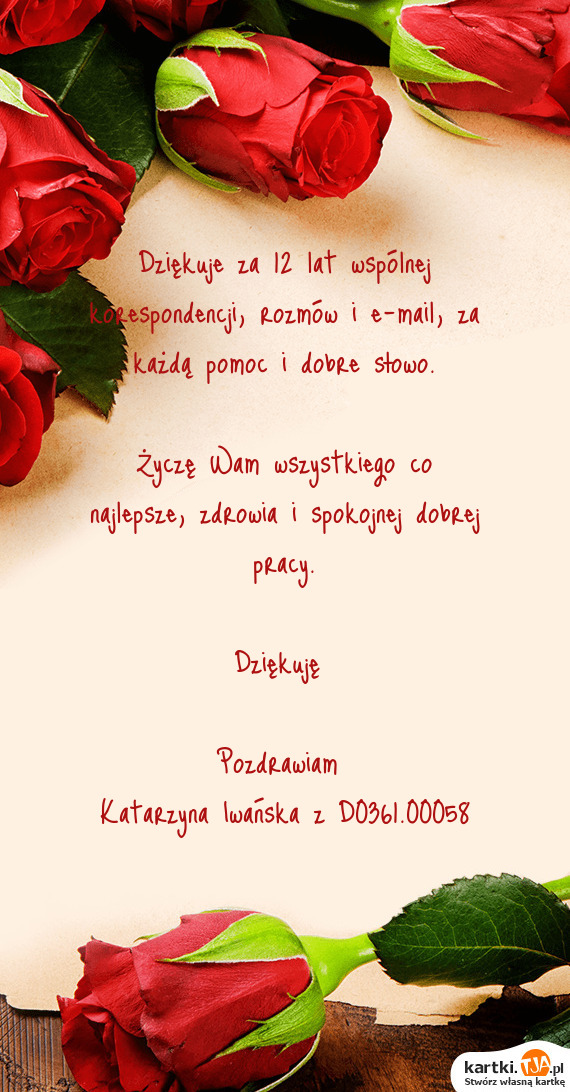 Dziękuje za 12 lat wspólnej
korespondencji, rozmów i e-mail, za
każdą pomoc i dobre słowo.
Życzę Wam wszystkiego co
najlepsze, zdrowia i spokojnej dobrej
pracy.
Dziękuję
Pozdrawiam
Katarzyna Iwańska z D0361.00058
kartki.TJA.pl
Stwórz własną kartkę